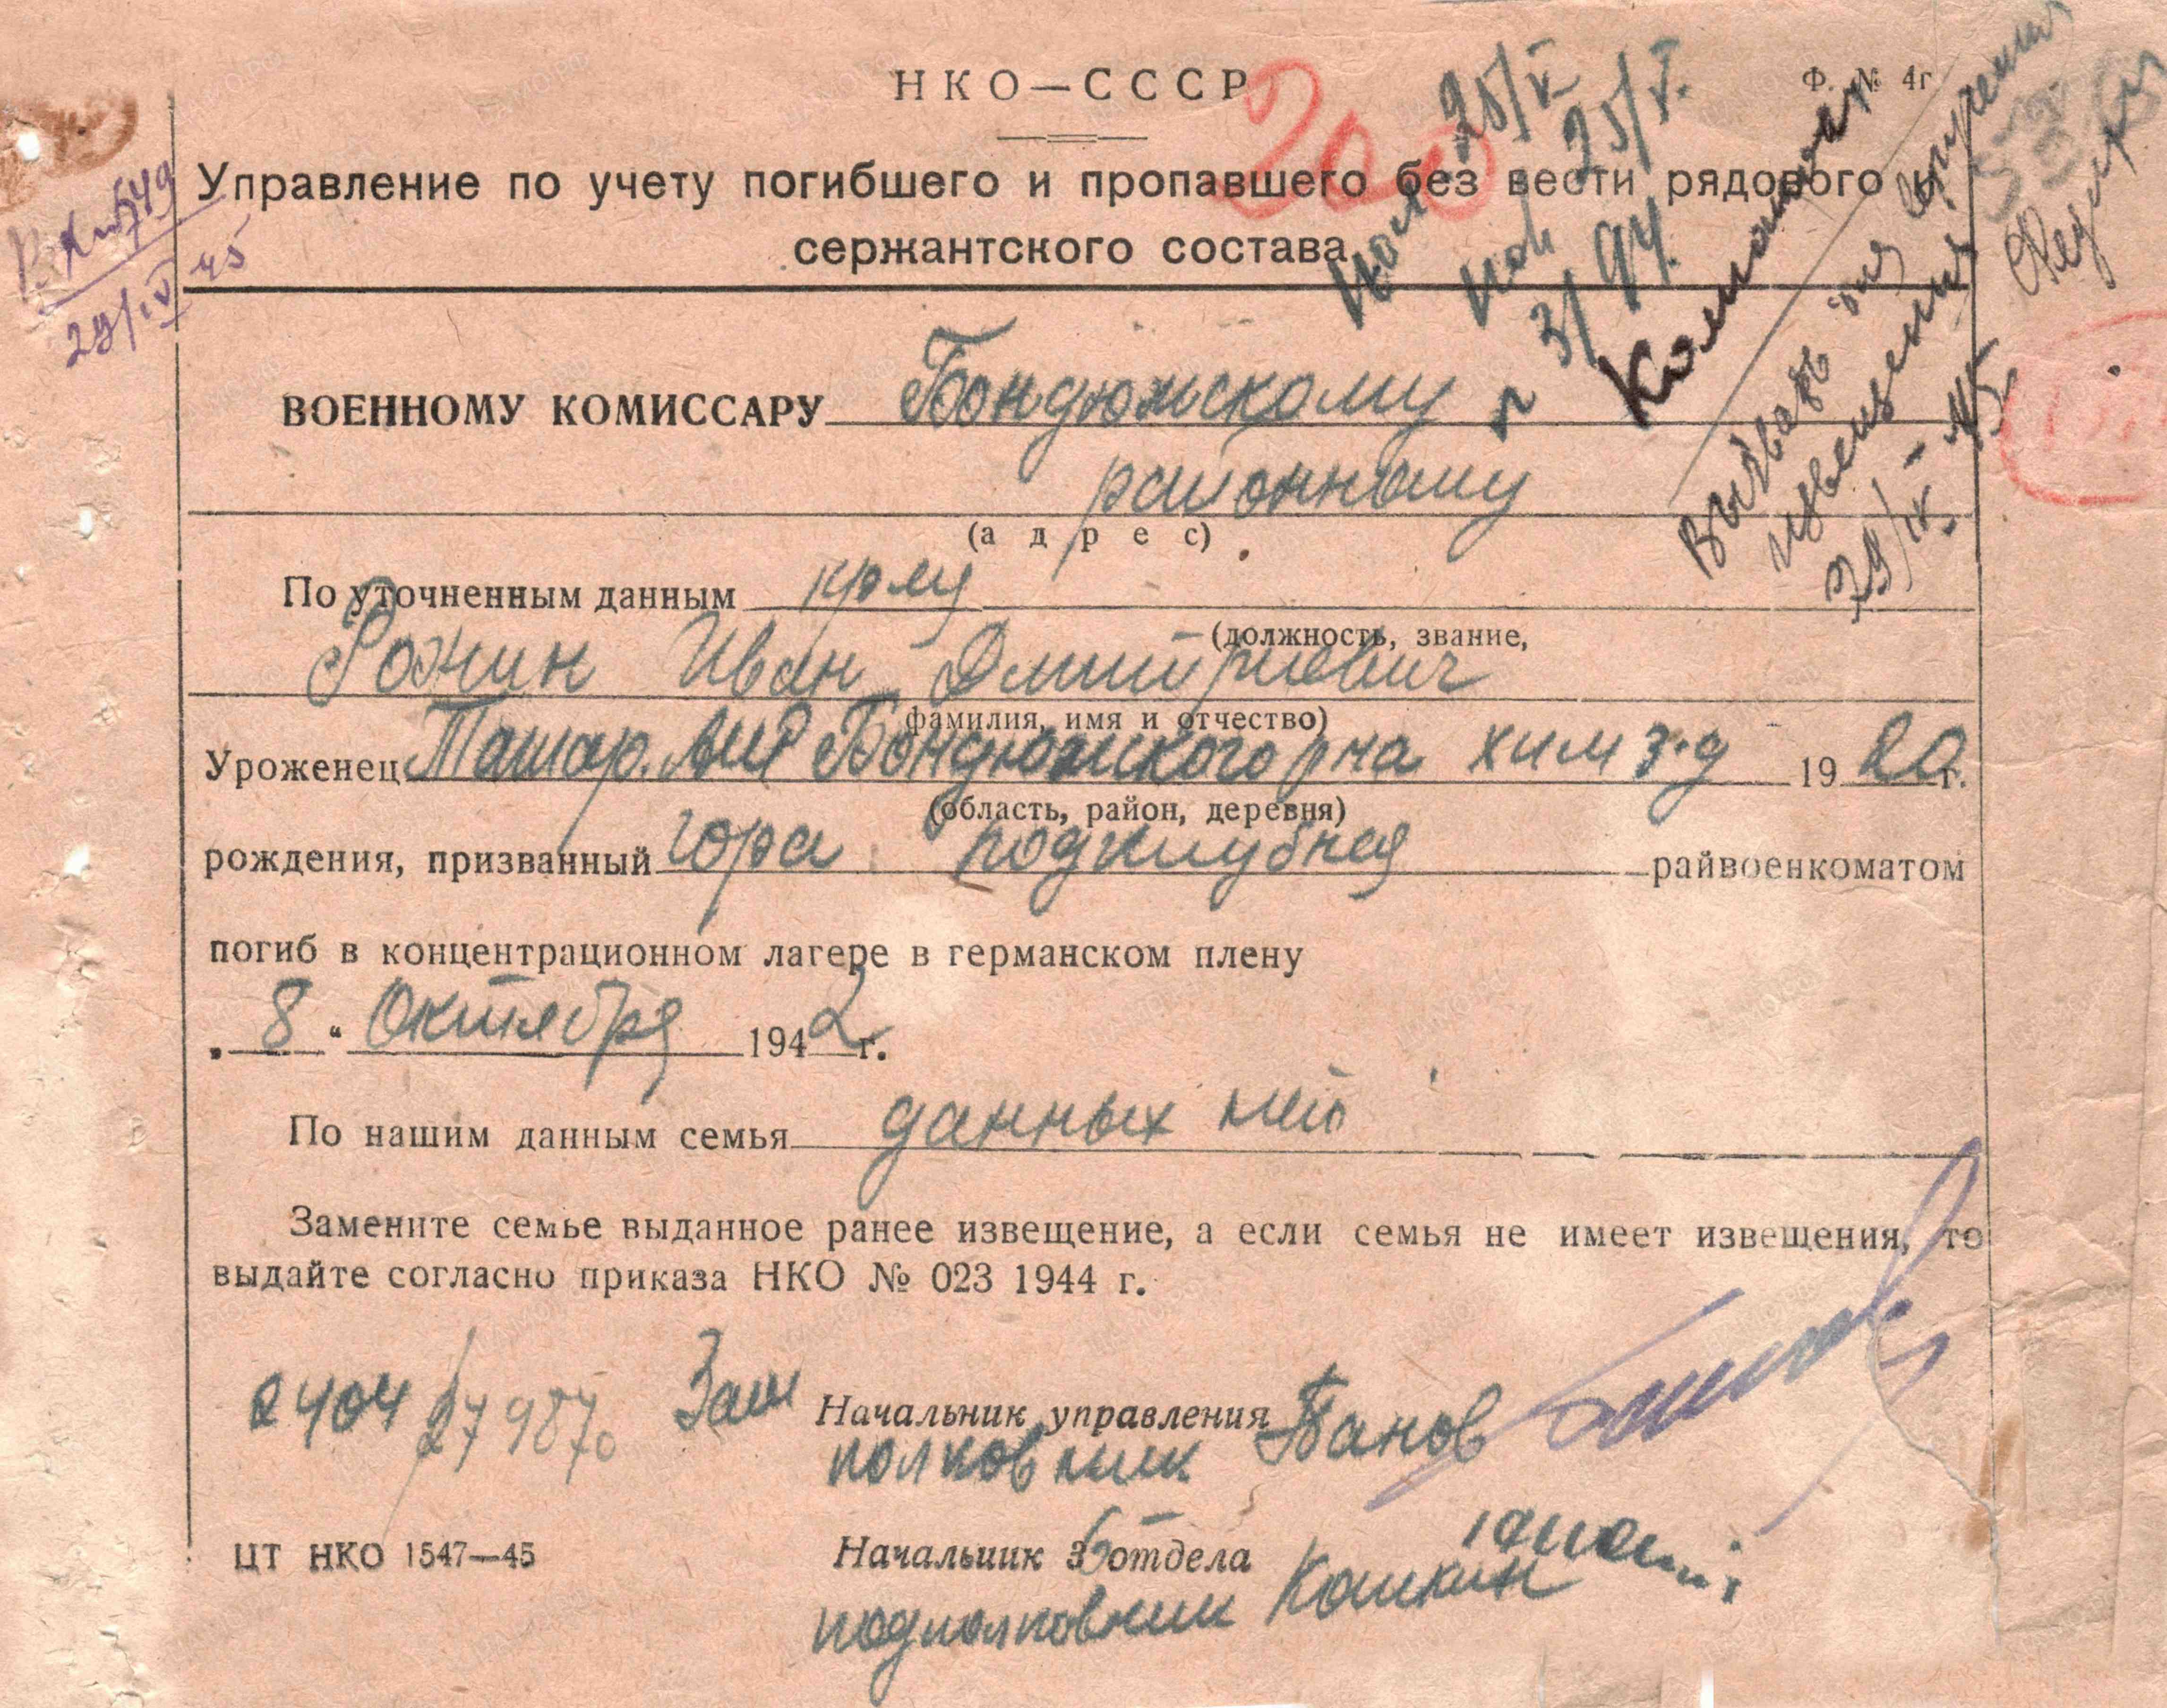 НКО—СССР
Ф. № 4г
200
Управление по учету погибшего и пропавшего без вести рядового и
сержантского состава
29/IV 45
25/V
25/V.
Выдвать для вручения
извещения
29/IV - 45
ВОЕННОМУ КОМИССАРУ Бондюжскому
районному
(адрес)
По уточненным данным кр-му
(должность, звание,
Рожин Иван Дмитриевич
фамилия, имя и отчество)
Уроженец Татар. АССР Бондюжского р-на хим з-д 1920 г.
(область, район, деревня)
рождения, призванный гора подклубная райвоенкоматом
погиб в концентрационном лагере в германском плену
„8“ Октября 1942 г.
По нашим данным семья данных нет
Замените семье выданное ранее извещение, а если семья не имеет извещения, то
выдайте согласно приказа НКО № 023 1944 г.
2404
Зам Начальник управления
полковник Банов
ЦТ НКО 1547—45
Начальник 5 отдела
подполковник Кошкин